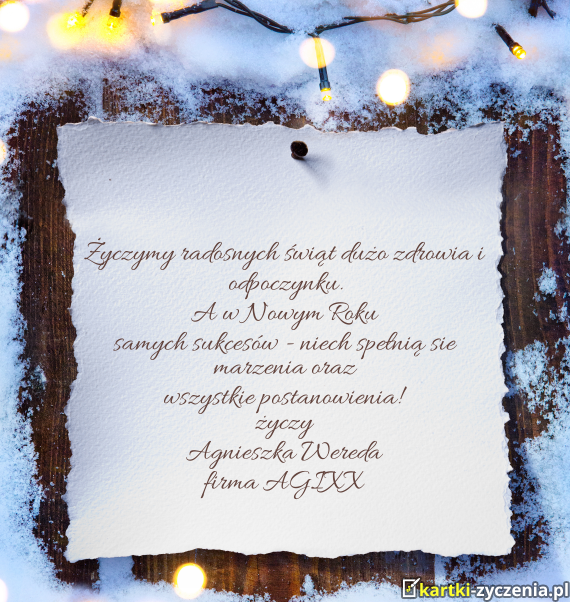 Życzymy radosnych świąt dużo zdrowia i
odpoczynku.
A w Nowym Roku
samych sukcesów - niech spełnią sie
marzenia oraz
wszystkie postanowienia!
życzy
Agnieszka Wereda
firma AGIXX
kartki-zyczenia.pl